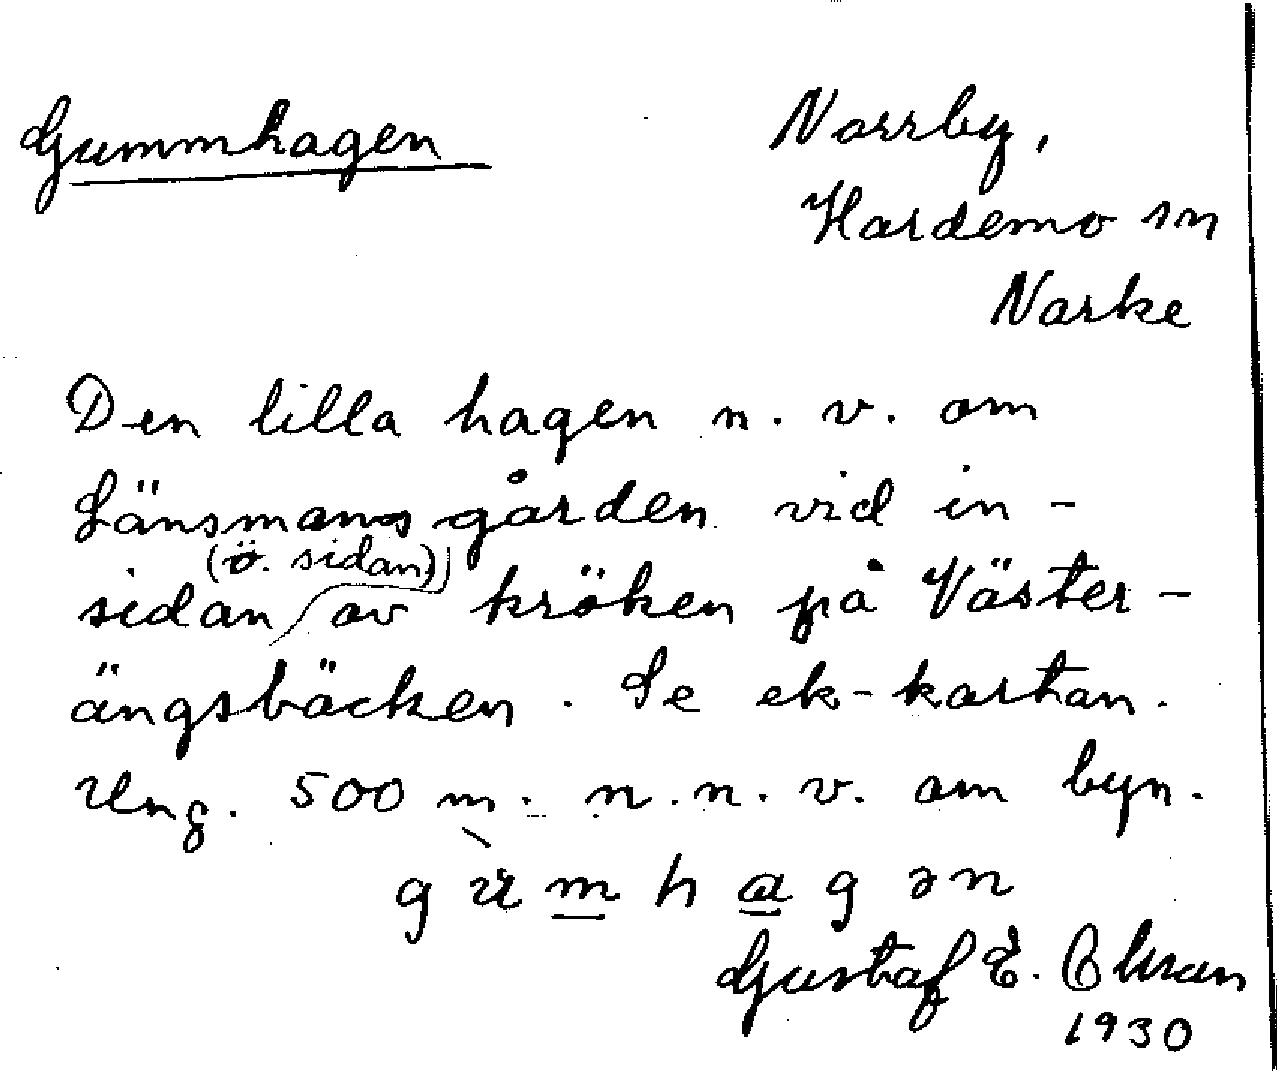 Gummhagen
Norrby,
Hardemo sn
Narke
Den lilla hagen n. v. om
Länsmansgården vid in-
(ö. sidan)
sidan av kröken på Väster-
ängsbäcken. Se ek-kartan.
Ung. 500 m. n. n. v. om byn.
Gustaf E. Olson
1930